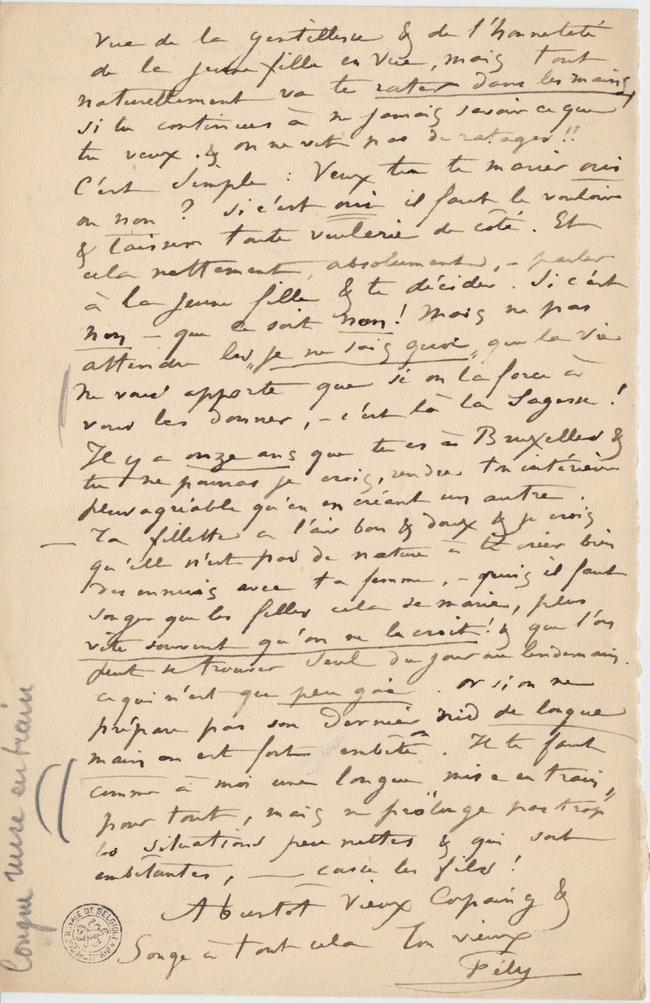 vue de la gentillesse & de l'honnêteté
de la jeune fille en vue, mais tout
naturellement va te rater dans les mains,
si tu continues à ne jamais savoir ce que
tu veux. & on ne vit pas de ratages!!
C'est simple : Veux tu te marier oui
ou non ? Si c'est oui il faut le vouloir
& laisser toute veulerie de côté. Et
cela nettement, absolument, – parler
à la jeune fille & te décider. Si c'est
non – que ce soit non! Mais ne pas
attendre les „je ne sais quoi" que la vie
ne vous apporte que si on la force à
vous les donner, – c'est là la Sagesse!
Il y a onze ans que tu es à Bruxelles &
tu ne pourras je crois, rendre ton intérieur
agréable qu'en en créant un autre.
— Ta fillette a l'air bon & doux & je crois
qu'elle n'est pas de nature à te créer bien
des ennuis avec ta femme, – puis il faut
songer que les filles cela se marie, plus
vite souvent qu'on ne le croit! & que l'on
peut se trouver seul du jour au lendemain.
ce qui n'est que peu gai. Or si on ne
prépare pas son dernier nid de longue
main on est fort embêté. Il te faut
comme à moi une longue „mise en train"
pour tout, mais ne prolonge pas trop
les situations peu nettes & qui sont
embêtantes, — casse les fils!
A bientôt Vieux Copaing &
Songe à tout cela Ton vieux
Fély
Longue mise en train
BIBLIOTHEQUE ROYALE DE BELGIQUE